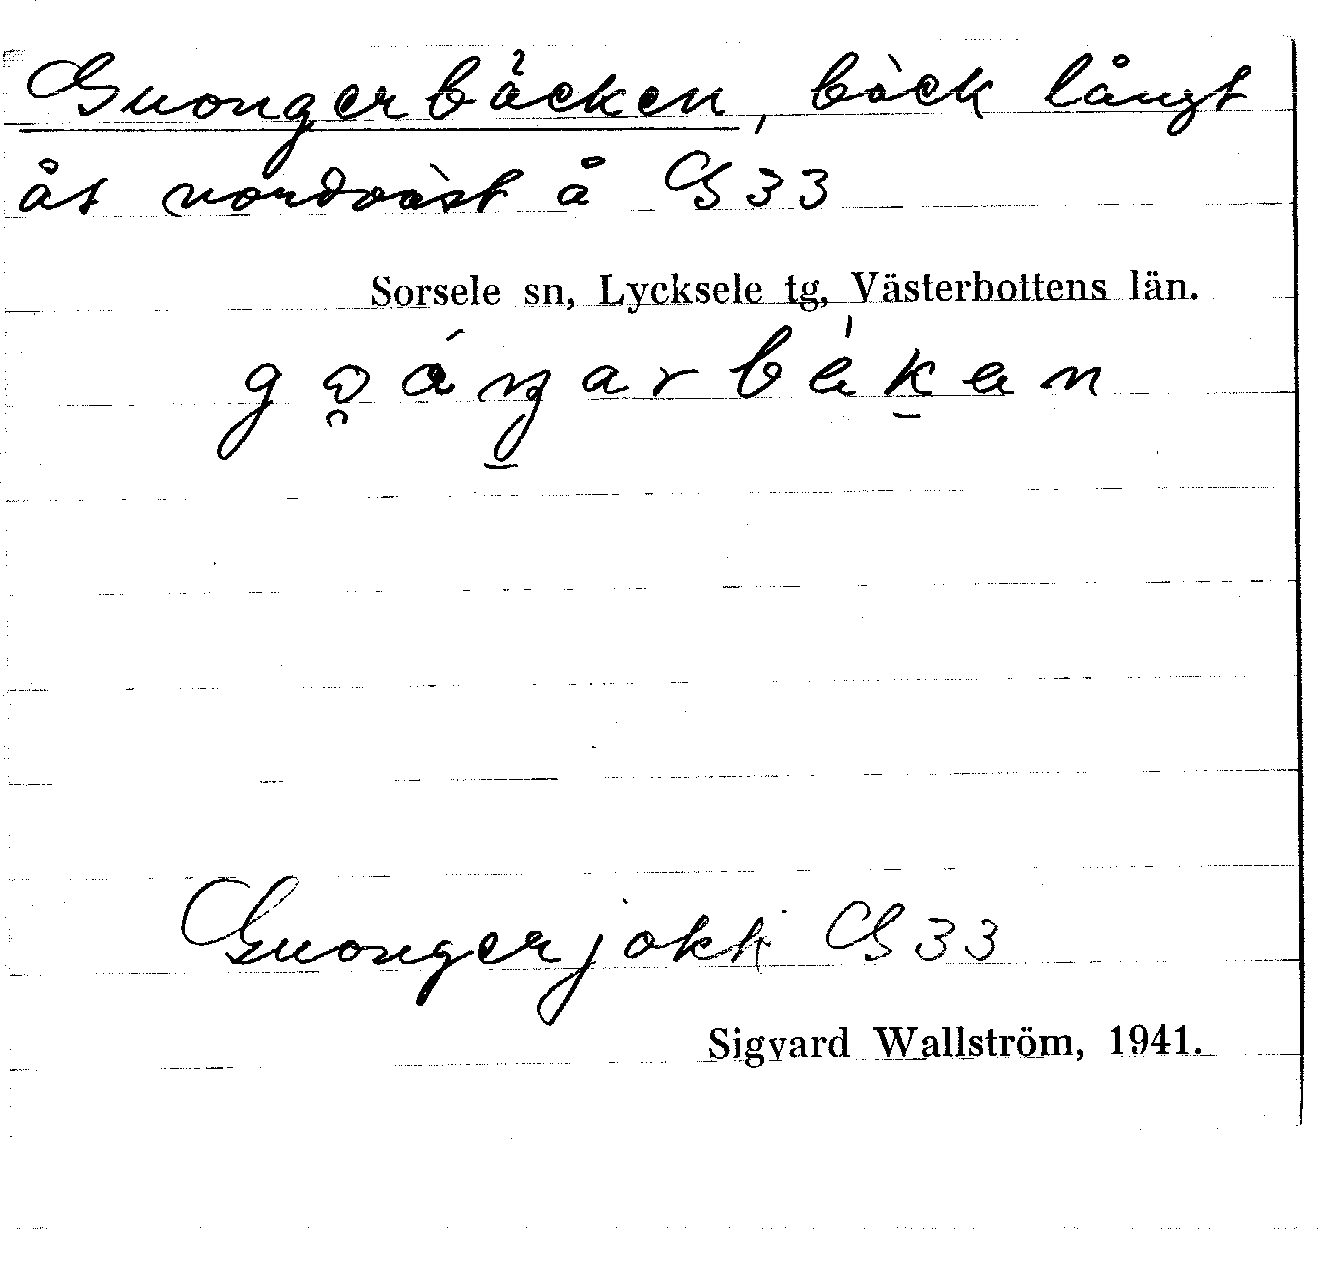 Guongerbäcken, bäck långt
åt nordväst å GS 33
Sorsele sn, Lycksele tg, Västerbottens län.
Guongerjokk GS 33
Sigvard Wallström, 1941.